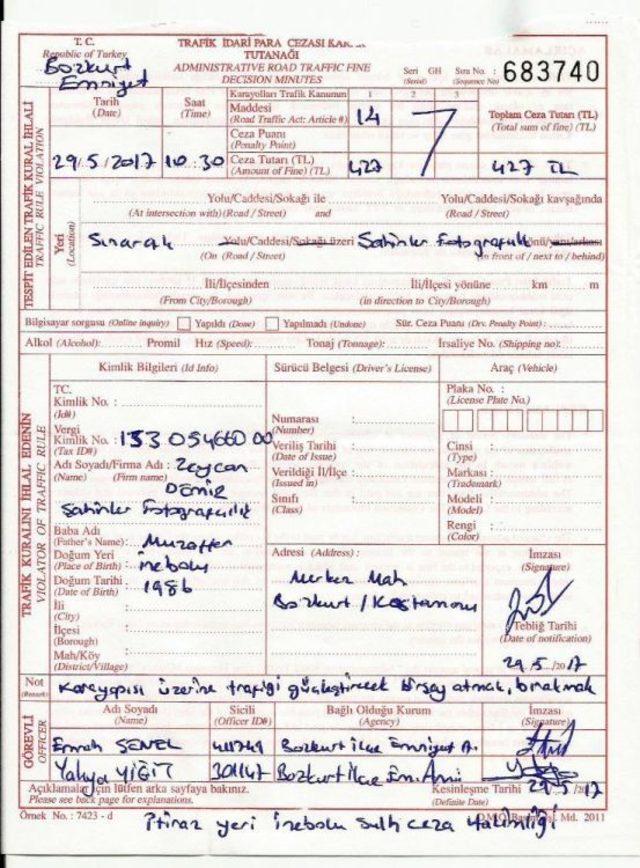 T. C.
Republic of Turkey
Bozkurt
Emniyet
TRAFİK İDARİ PARA CEZASI KARAR
TUTANAĞI
ADMINISTRATIVE ROAD TRAFFIC FINE
DECISION MINUTES
Seri GH Sıra No. : 683740
(Serial) (Sequence No)
TESPİT EDİLEN TRAFİK KURAL İHLALİ
TRAFFIC RULE VIOLATION
Tarih
(Date)
Saat
(Time)
Karayolları Trafik Kanunun 1 2 3
Maddesi 14
(Road Traffic Act: Article #)
Ceza Puanı
(Penalty Point)
Ceza Tutarı (TL) 427
(Amount of Fine) (TL)
Toplam Ceza Tutarı (TL)
(Total sum of fine) (TL)
29.5/2017 10.30
427 TL
Yeri
(Location)
Yolu/Caddesi/Sokağı ile Yolu/Caddesi/Sokağı kavşağında
(At intersection with) (Road / Street) and (Road / Street)
Yolu/Caddesi/Sokağı üzeri Şahinler Fotoğrafçılık önü/yanı/arkası
(On (Road / Street) (in front of / next to / behind)
İli/İlçesinden İli/İlçesi yönüne km m
(From City/Borough) (in direction to City/Borough)
Bilgisayar sorgusu (Online inquiry) Yapıldı (Done) Yapılmadı (Undone) Sür. Ceza Puanı (Drv. Penalty Point) :
Alkol (Alcohol): Promil Hız (Speed): Tonaj (Tonnage): İrsaliye No. (Shipping no):
TRAFİK KURALINI İHLAL EDENİN
VIOLATOR OF TRAFFIC RULE
Kimlik Bilgileri (Id Info) Sürücü Belgesi (Driver's License) Araç (Vehicle)
TC.
Kimlik No. :
(Id#)
Vergi
Kimlik No. : 133 054660 00
(Tax ID#)
Adı Soyadı/Firma Adı : Zeycan
(Name) (Firm name)
Demir
Şahinler Fotoğrafçılık
Baba Adı
(Father's Name): Muzaffer
Doğum Yeri
(Place of Birth) : inebolu
Doğum Tarihi : 1986
(Date of Birth)
İli
(City)
İlçesi
(Borough)
Mah/Köy
(District/Village)
Numarası :
(Number)
Veriliş Tarihi :
(Date of Issue)
Verildiği İl/İlçe :
(Issued in)
Sınıfı :
(Class)
Plaka No. :
(License Plate No.)
Cinsi :
(Type)
Markası :
(Trademark)
Modeli :
(Model)
Rengi :
(Color)
Adresi (Address) :
Merkez Mah
Bozkurt / Kastamonu
İmzası
(Signature)
Tebliğ Tarihi
(Date of notification)
29.5./2017
Not
(Remark)
Karayapısı üzerine trafiği güçleştirecek birşey atmak, bırakmak
GÖREVLİ
OFFICER
Adı Soyadı Sicili Bağlı Olduğu Kurum İmzası
(Name) (Officer ID#) (Agency) (Signature)
ŞENEL Bozkurt ilçe Emniyet A.
Yahya YİĞİT 301147 Bozkurt ilçe Em. Amir
Açıklamalar için lütfen arka sayfaya bakınız. Kesinleşme Tarihi 29.5./2017
Please see back page for explanations. (Definite Date)
Örnek No. : 7423 - d D.M.O. Basım İşl. Md. 2011
itiraz yeri inebolu sulh ceza hakimliği